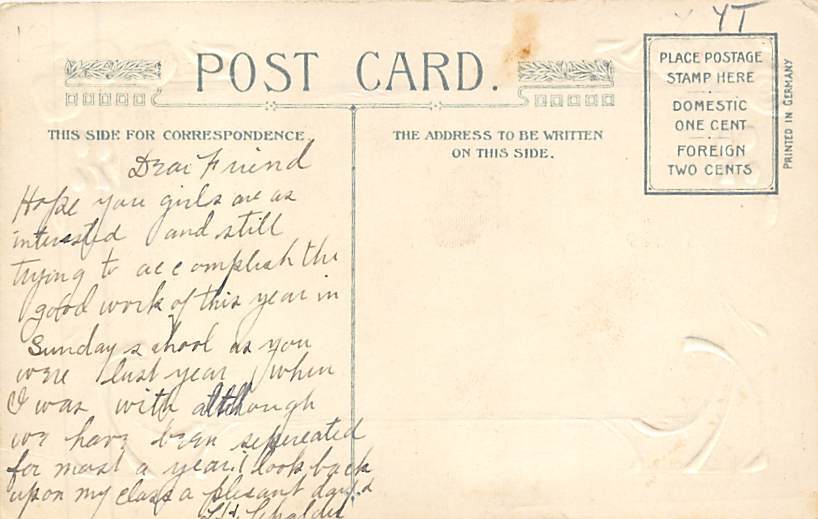 YT
POST CARD.
PLACE POSTAGE
STAMP HERE
DOMESTIC
ONE CENT
FOREIGN
TWO CENTS
PRINTED IN GERMANY
THIS SIDE FOR CORRESPONDENCE.
THE ADDRESS TO BE WRITTEN
ON THIS SIDE.
Dear Friend
Hope you girls are as
interested and still
trying to accomplish the
good work of this year in
Sunday school as you
were last year when
I was with although
we have been sepereated
for most a year. I look back
upon my class a plesant days